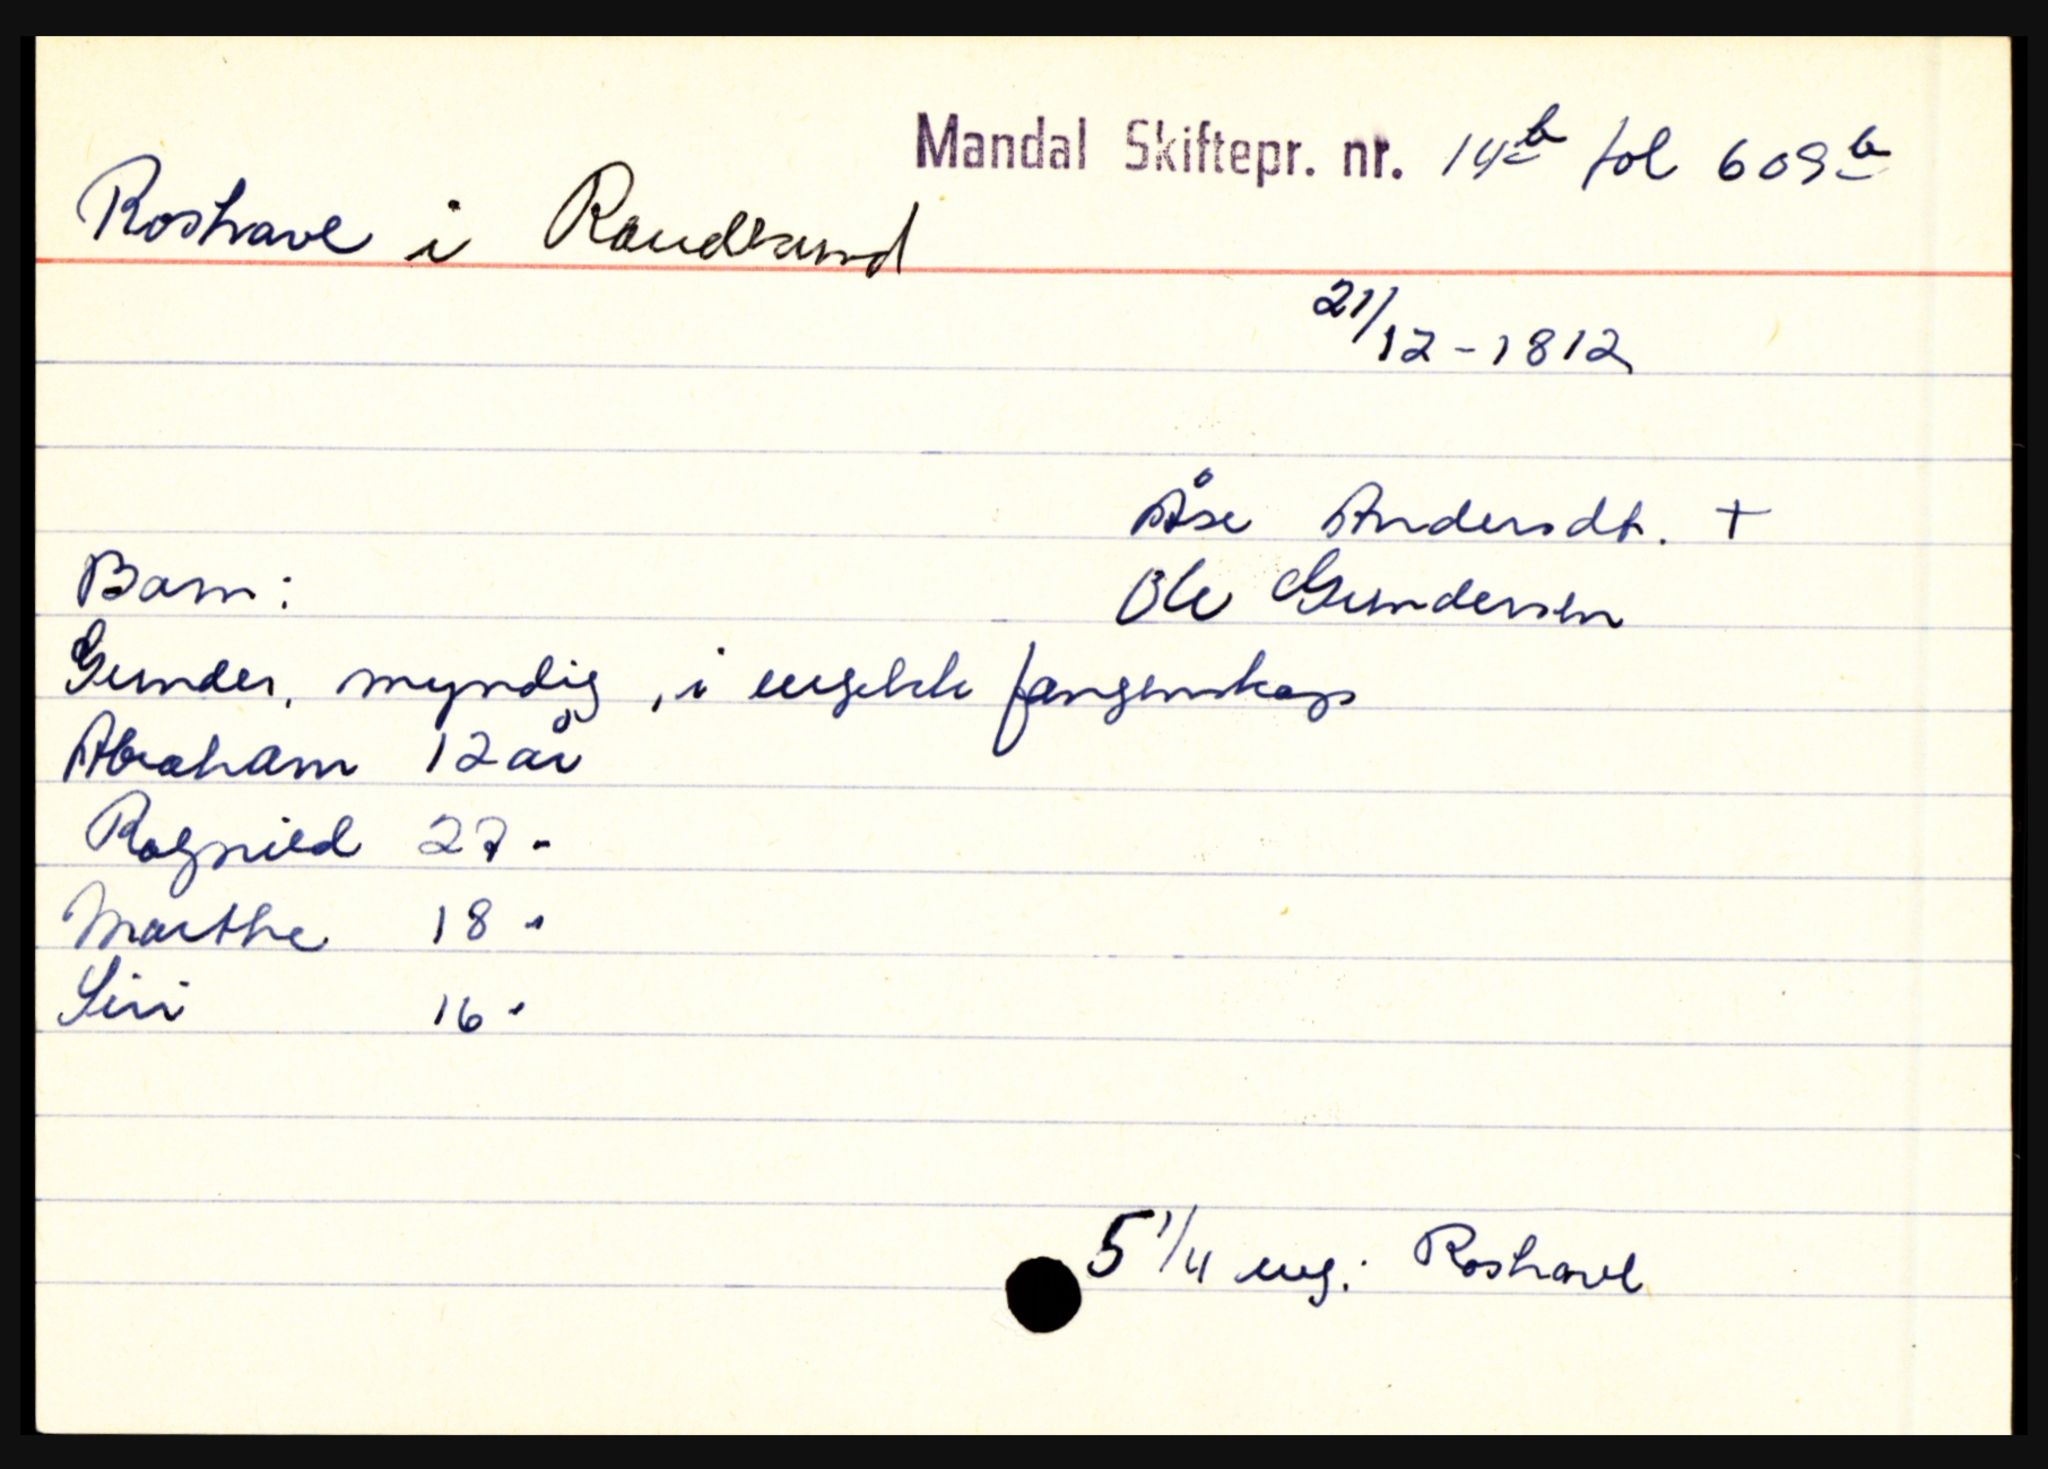 Mandal Skiftepr. nr. 14b fol 609b
Roshave i Randesund
21/12-1812
Åse Andersdt. +
Barn:
Ole Gundersen
Gunder, myndig, i engelsk fangenskap
Abraham 12 år
Ragnild 27 -
Marthe 18 -
Siri 16 -
5 1/4 eng: Roshave